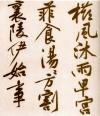 櫛風沐雨卑宮
菲食湯〻方割
襄陵伊始事